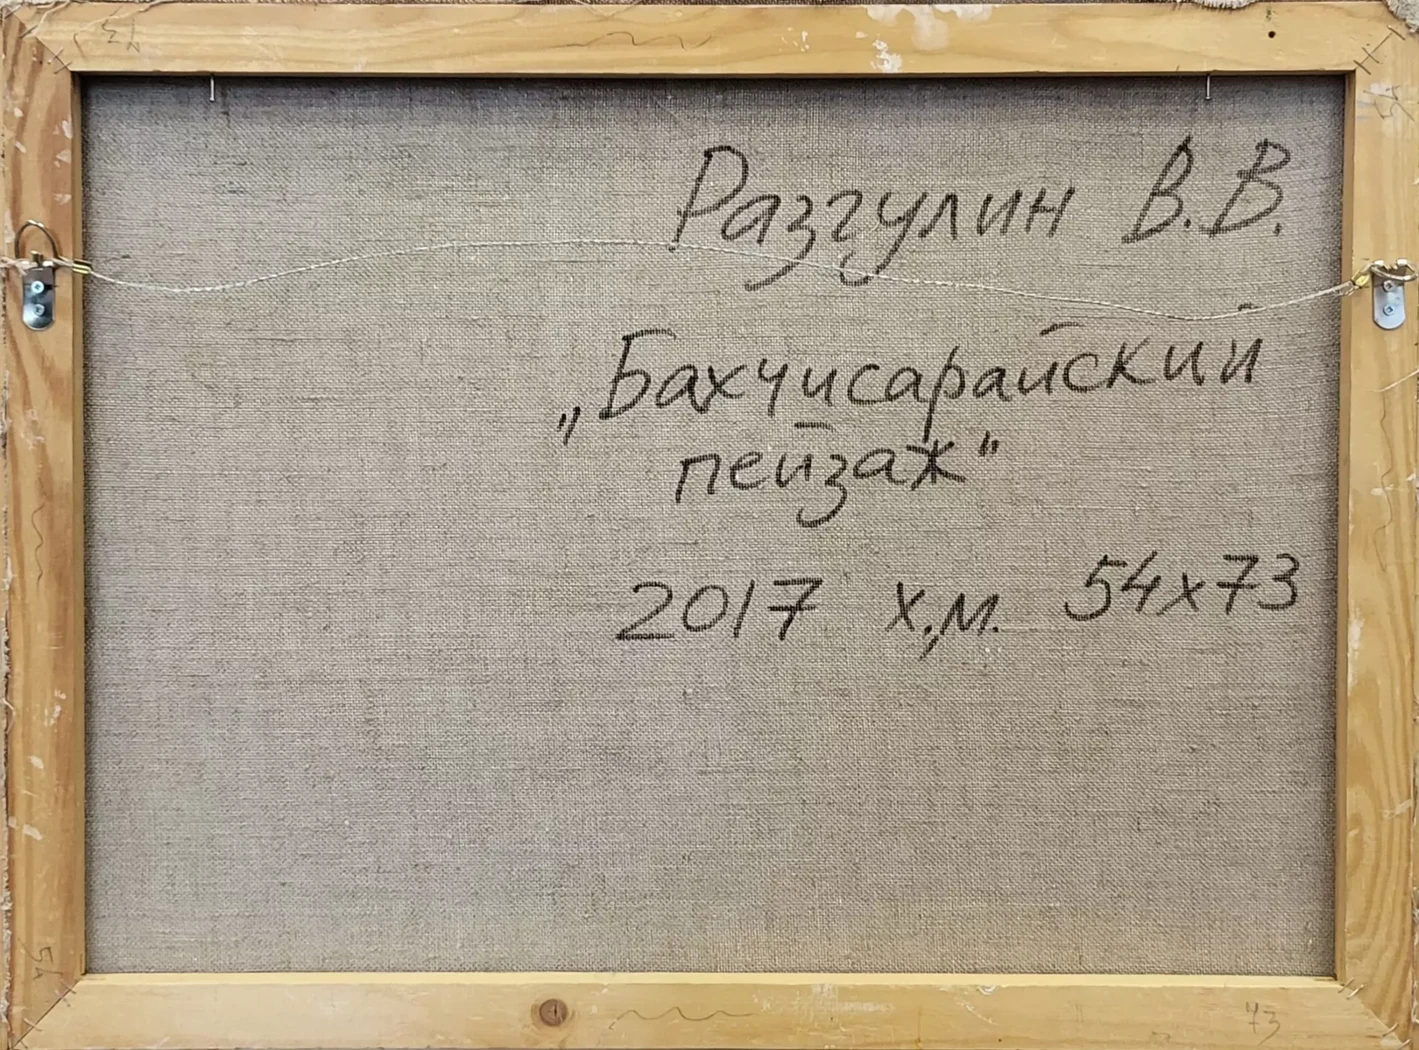 Разгулин В.В.
„Бахчисарайский
пейзаж"
2017 х.,м. 54х73
73
54
54
73